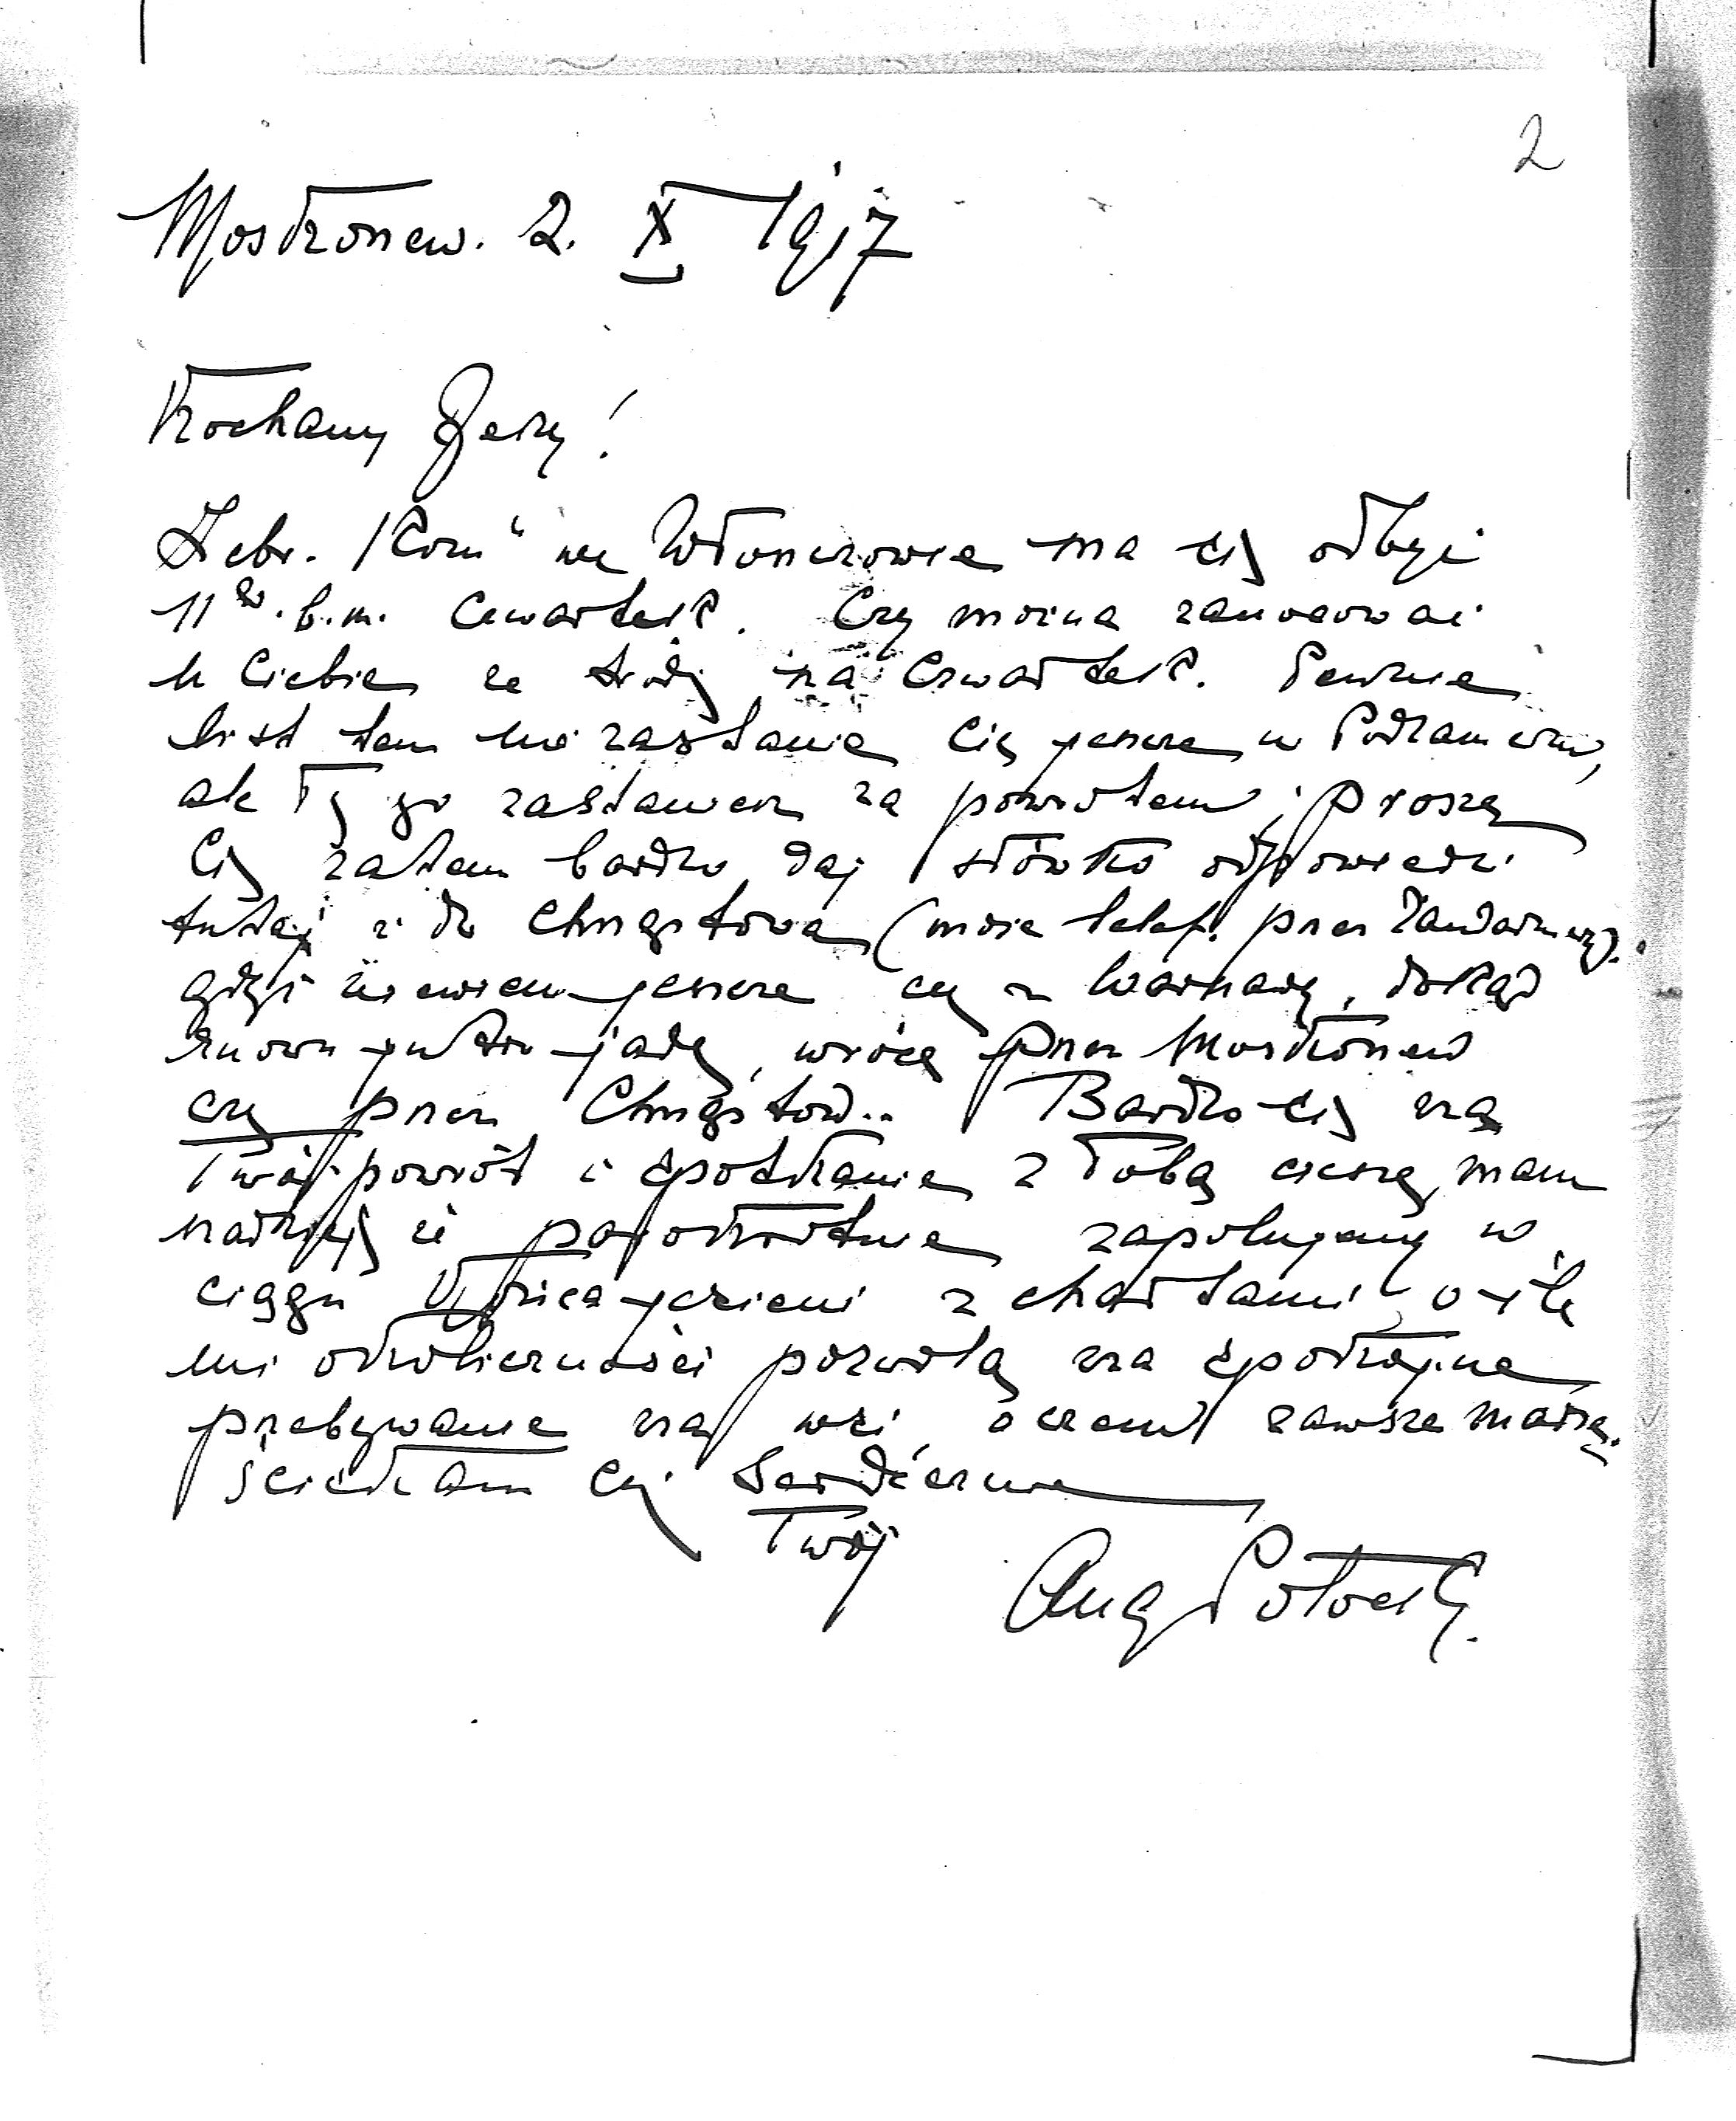 2
Moskorzew. 2. X 1917
Kochany Jerzy!
Zebr. Kom" we Włoszczowie ma się odbyć
11go b.m. Czwartek. Czy można zanocować
u Ciebie ze środy na Czwartek. Pewnie
list ten nie zastanie Cię jeszcze w Podzamczu,
ale Ty go zastaniesz za powrotem; proszę
Cię zatem bardzo daj słówko odpowiedzi
tutaj i do Chrząstowa (może telef. przez Żandarmerję).
gdyż nie wiem jeszcze czy z Warszawy, dokąd
znowu jutro jadę, wrócę przez Moskorzew
czy przez Chrząstów.. Bardzo się na
Twój powrót i spotkanie z Tobą cieszę, mam
nadzieję że parokrotnie zapolujemy w
ciągu jesieni z chartami o ile
mi okoliczności pozwolą na spokojne
przebywanie na wsi, o czem zawsze marzę.
Ściskam Cię serdecznie
Twój
Aug Potocki.